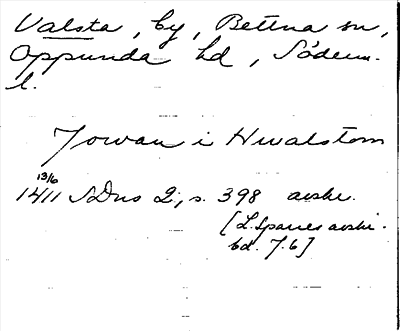 Valsta, by, Bettna sn,
Oppunda hd, Söderm.
l.
Jowan i Hwalstom
13/6
1411 SDns 2, s. 398 avskr.
[L. Sparres avskr.
bd. 7.6]